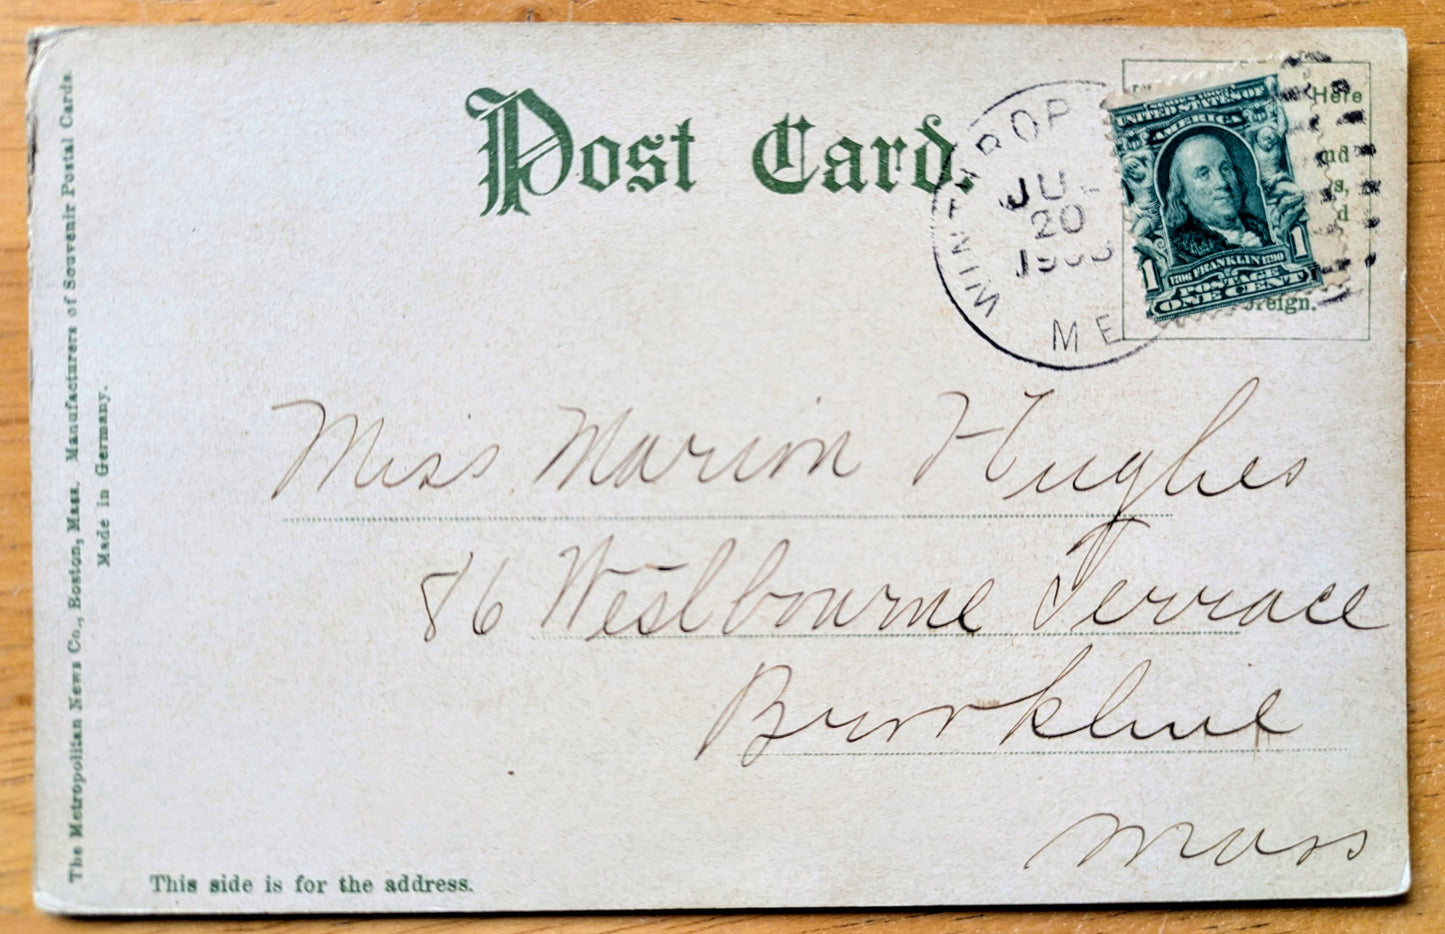 Post Card.
WINTHROP
JUL
20
ME
Here
SERIES 1902
UNITED STATES OF
AMERICA
1706 FRANKLIN 1790
POSTAGE
1 ONE CENT 1
Miss Marion Hughes
86 Westbourne Terrace
Brookline
Mass
This side is for the address.
The Metropolitan News Co., Boston, Mass. Manufacturers of Souvenir Postal Cards.
Made in Germany.